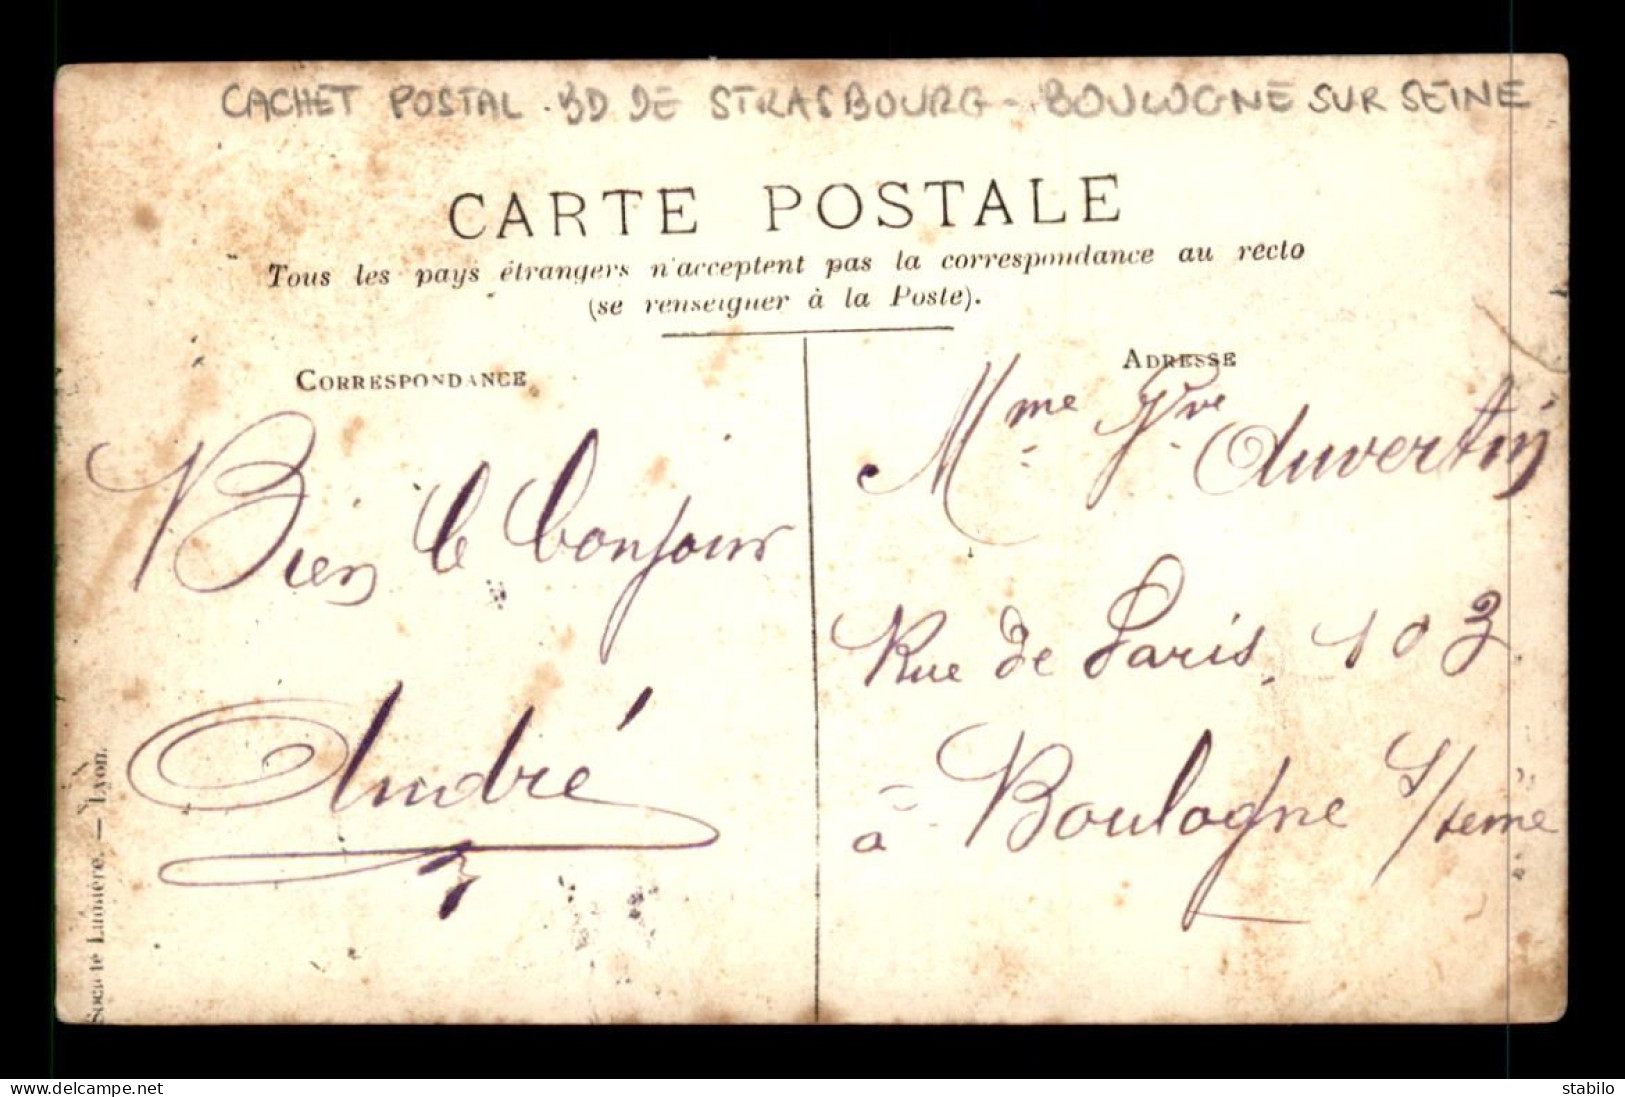 CACHET POSTAL . BD DE STRASBOURG - BOULOGNE SUR SEINE
CARTE POSTALE
Tous les pays étrangers n'acceptent pas la correspondance au recto
(se renseigner à la Poste).
CORRESPONDANCE
Bien le bonjour
André
ADRESSE
Mme Vve Auvertin
Rue de Paris. 103
à Boulogne s/seine
Société Lumière. — Lyon.
delcampe.net
stabilo